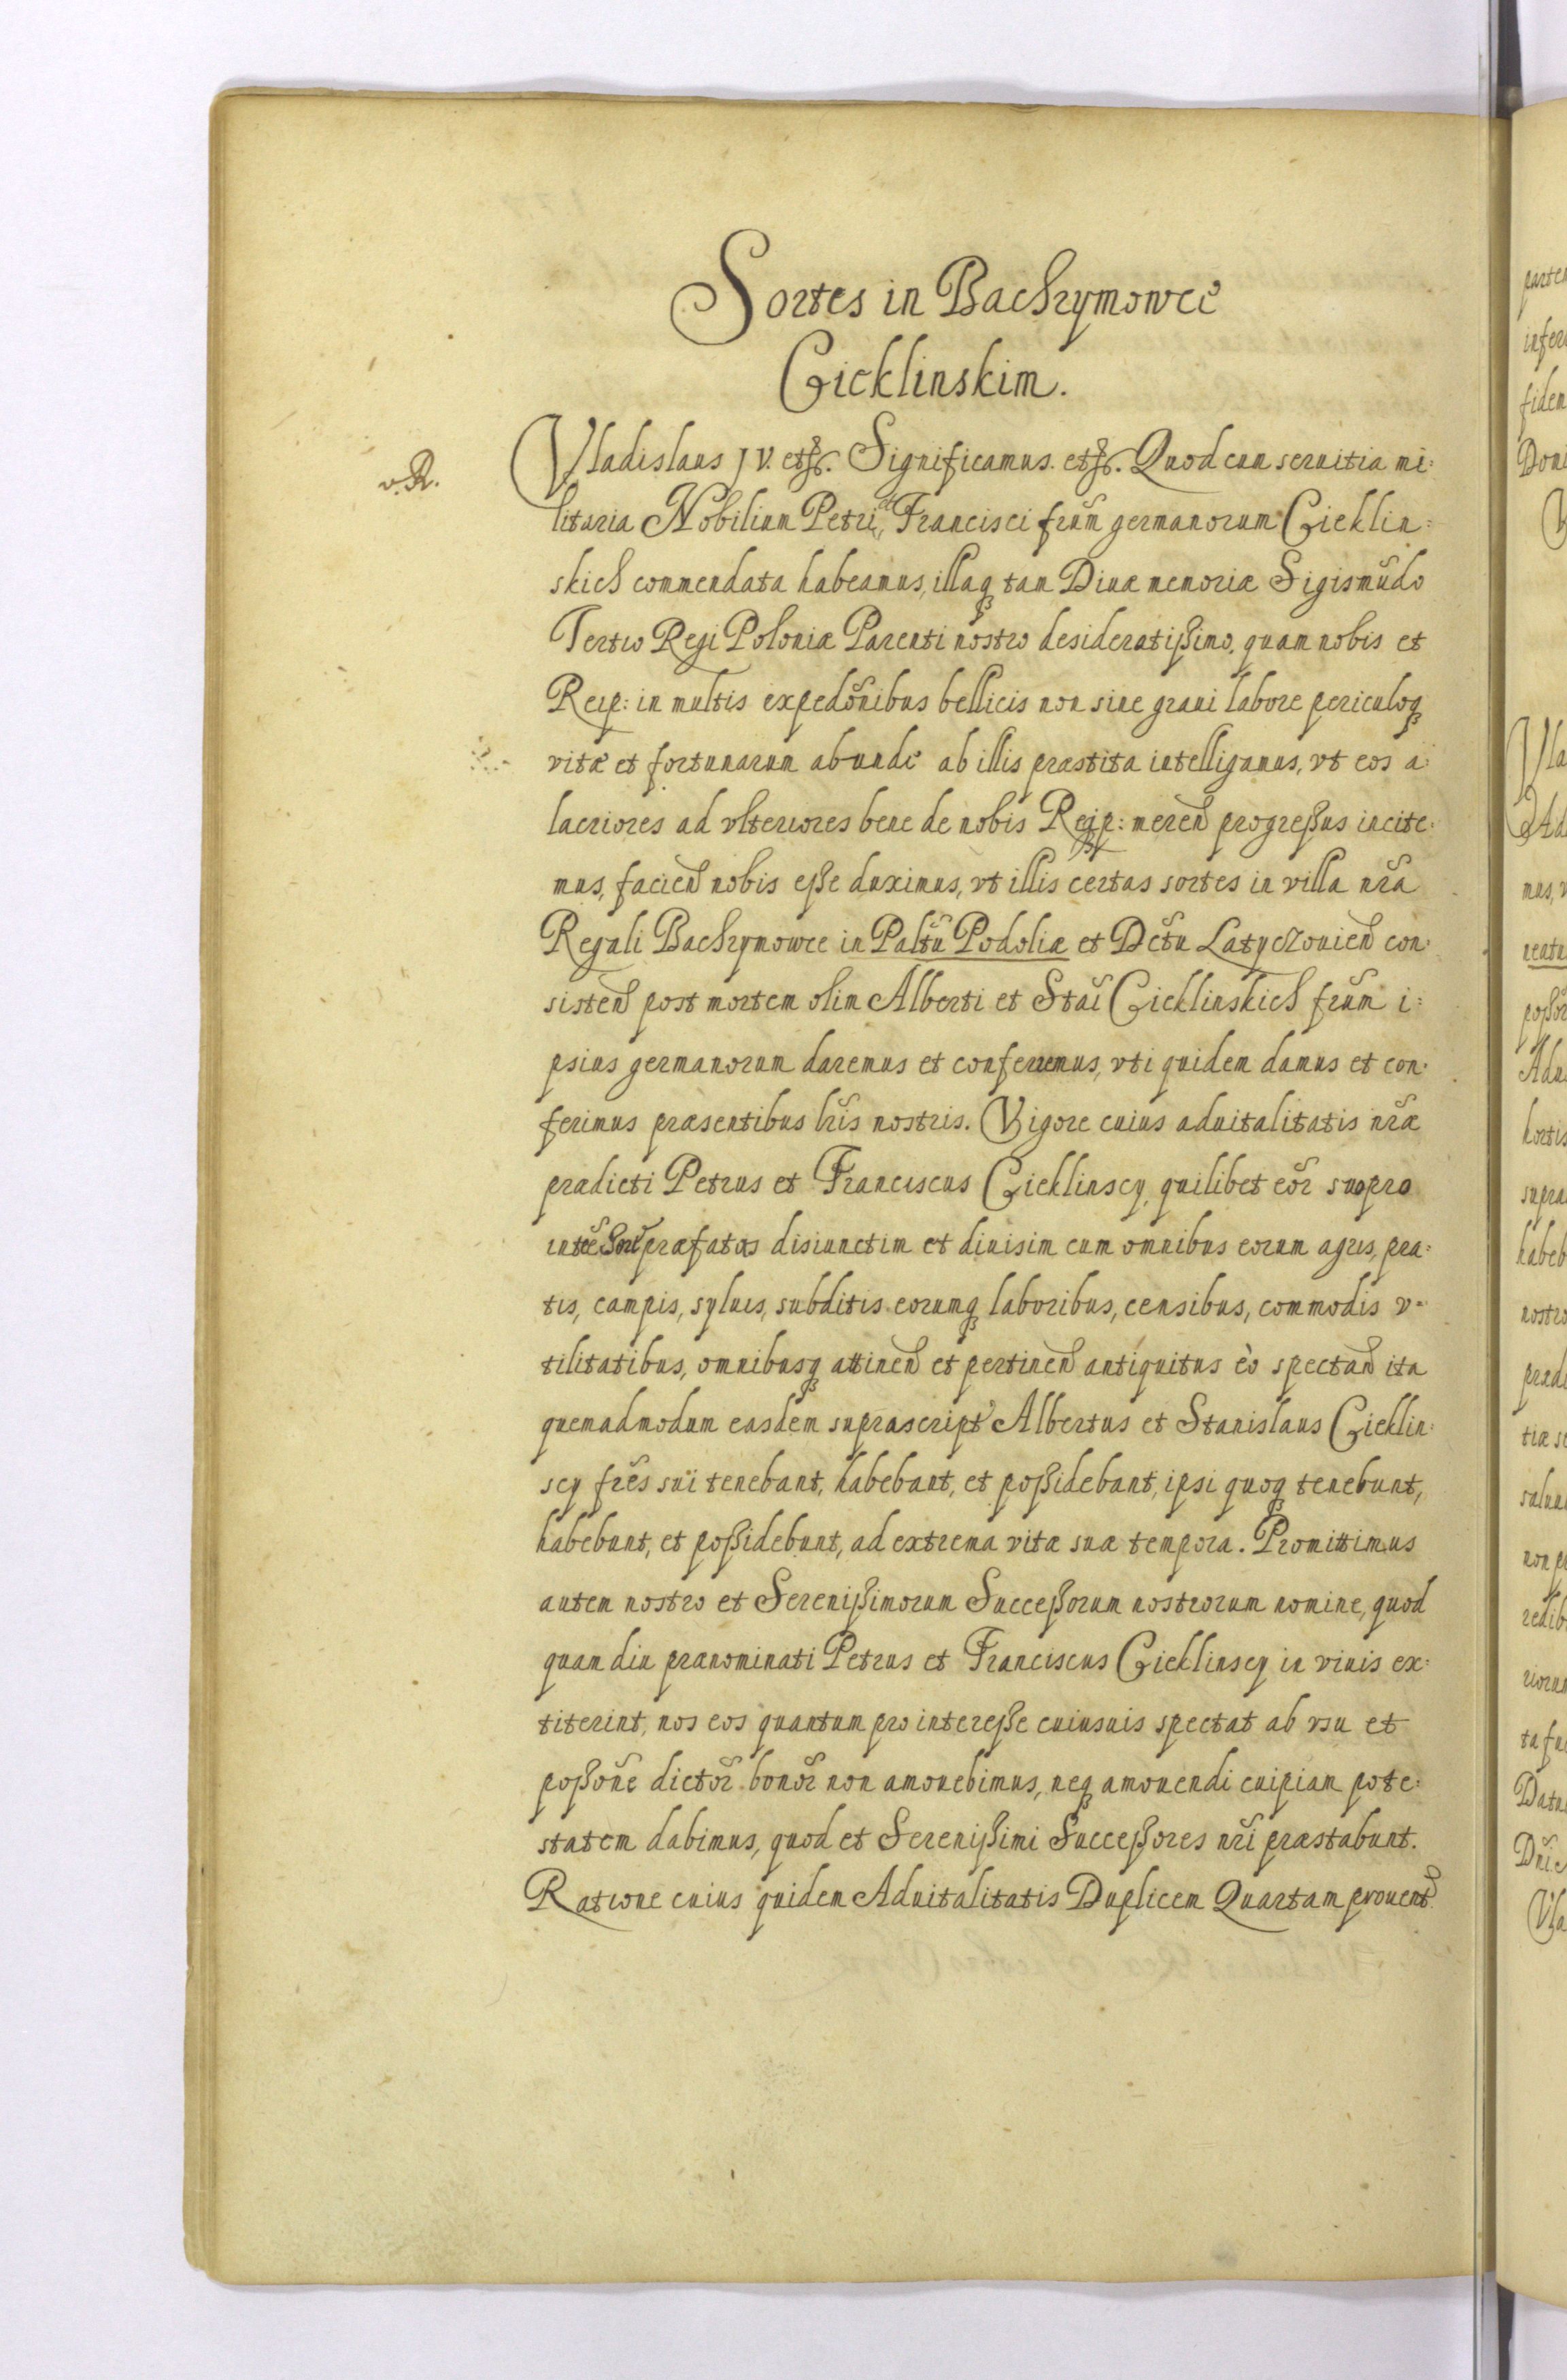 Sortes in Bachrymowce
Cieklinskim.
v. R.
Vladislaus IV. etc. Significamus. etc. Quod cum seruitia mi:
litaria Nobilium Petri et Francisci frum̃ germanorum Cieklin:
skich commendata habeamus, illaq tam Diuæ memoriæ Sigismŭdo
Tertio Regi Poloniæ Parenti nostro desideratißimo, quam nobis et
Reip: in multis expedõnibus bellicis non sine graui labore periculoq
vitæ et fortunarum abunde ab illis præstita intelligamus, vt eos a:
lacriores ad vlteriores bene de nobis Reip: meren̄ progreßus incite:
mus, facien̄ nobis eße duximus, vt illis certas sortes in villa nrã
Regali Bachrymowce in Paltũ Podoliæ et Dctũ Latyczouien̄ con:
sisten̄ post mortem olim Alberti et Staĩ Cieklinskich frum̃ i:
psius germanorum daremus et conferremus, vti quidem damus et con:
ferimus præsentibus lrĩs nostris. Vigore cuius aduitalitatis nrã̃e
prædicti Petrus et Franciscus Cieklinscy, quilibet eor̃ suo pro
præfatas disiunctim et diuisim cum omnibus eorum agris, pra:
tis, campis, syluis, subditis eorumq laboribus, censibus, commodis v:
tilitatibus, omnibusq attinen̄ et pertinen̄ antiquitus eò spectan̄ ita
quemadmodum easdem suprascript Albertus et Stanislaus Cieklin:
scy frẽs sui tenebant, habebant, et poßidebant, ipsi quoq tenebunt,
habebunt, et poßidebunt, ad extrema vitæ suæ tempora. Promittimus
autem nostro et Serenißimorum Succeßorum nostrorum nomine, quod
quam diu prænominati Petrus et Franciscus Cieklinscy in viuis ex:
titerint, nos eos quantum pro intereße cuiusuis spectat ab vsu et
poßoñe dictor̃ bonor̃ non amouebimus, neq amouendi cuipiam pote:
statem dabimus, quod et Serenißimi Succeßores nrĩ præstabunt.
Ratione cuius quidem Aduitalitatis Duplicem Quartam prouent